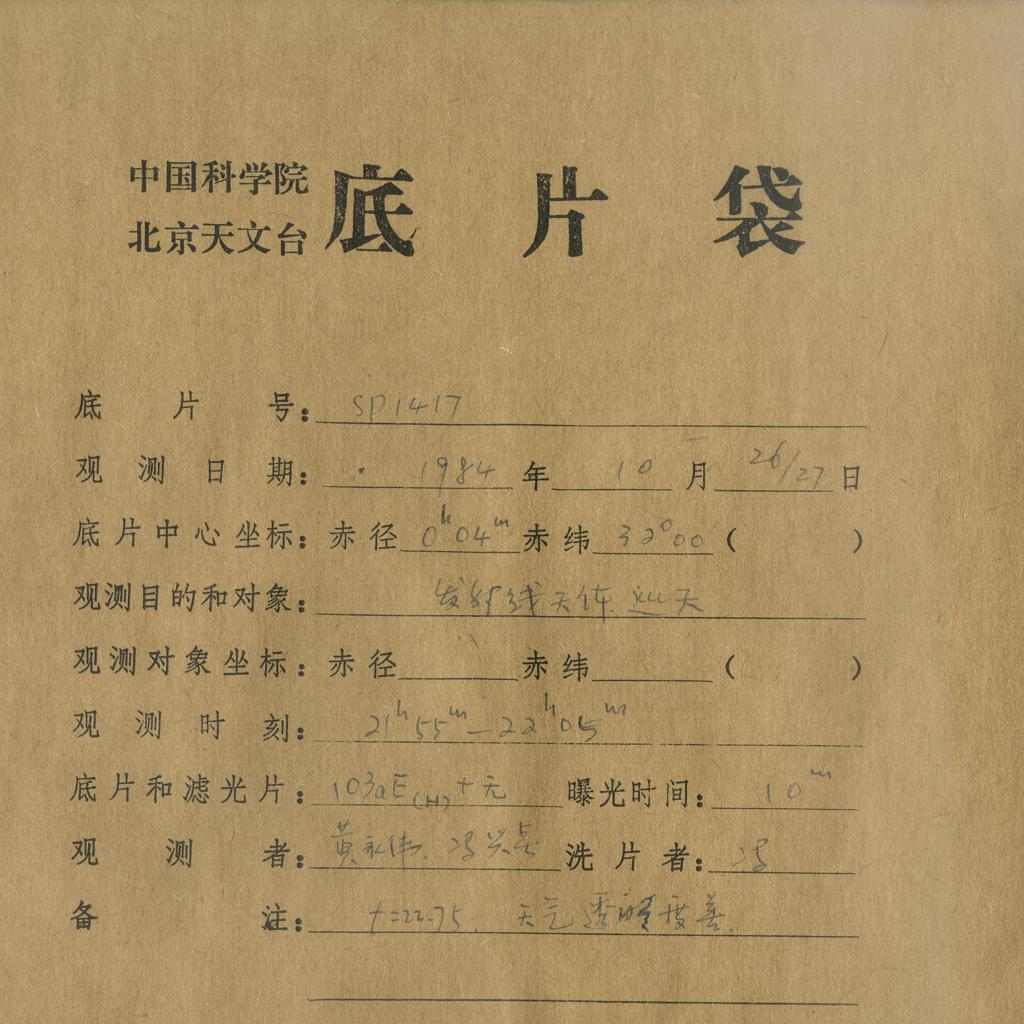 中国科学院
北京天文台
底片袋
底片号: SP1417
观测日期: 1984年10月26/27日
底片中心坐标: 赤径 0h04m 赤纬 32°00 ( )
观测目的和对象: 发射线天体 巡天
观测对象坐标: 赤径 赤纬 ( )
观测时刻: 21h55m—22h05m
底片和滤光片: 103aE(H)+无 曝光时间: 10m
观测者: 黄永伟、冯兴 洗片者: 冯
备注: t=22.75. 天气透 度差.